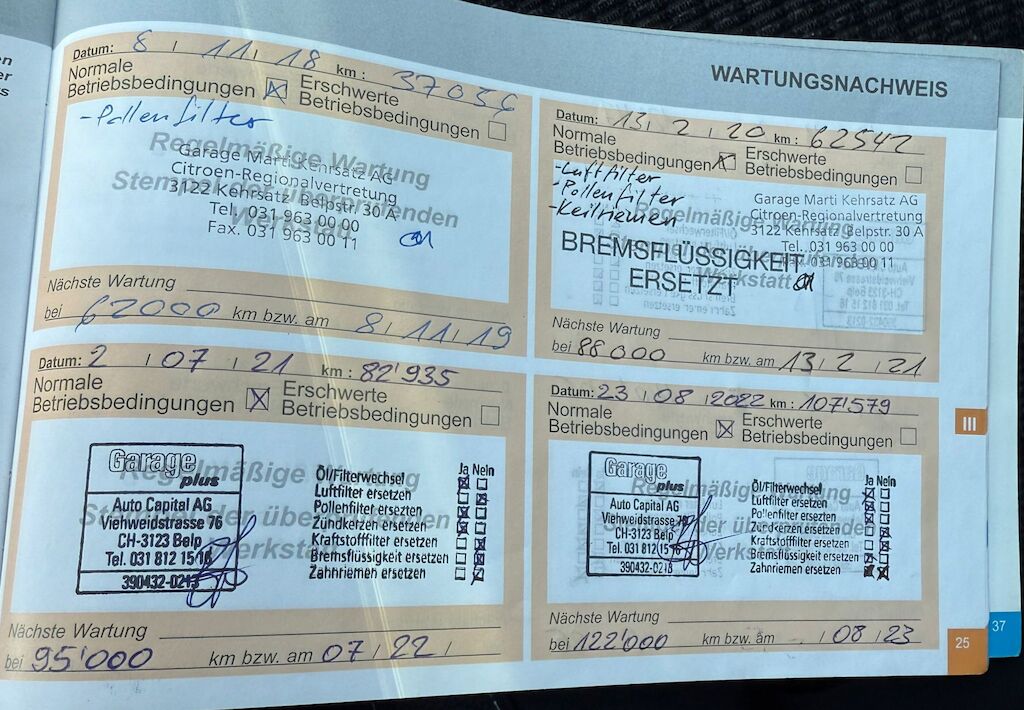 WARTUNGSNACHWEIS
Datum: 8 11 18 km: 37036
Normale
Betriebsbedingungen
Erschwerte
Betriebsbedingungen
- Pollenfilter
Regelmäßige Wartung
Stempel der übernehmenden
Werkstatt
Garage Marti Kehrsatz AG
Citroen-Regionalvertretung
3122 Kehrsatz Belpstr. 30 A
Tel. 031 963 00 00
Fax. 031 963 00 11
Nächste Wartung
bei 62000 km bzw. am 8 11 19
Datum: 13 2 20 km: 62547
Normale
Betriebsbedingungen
Erschwerte
Betriebsbedingungen
- Luftfilter
- Pollenfilter
- Keilriemen
BREMSFLÜSSIGKEIT
ERSETZT
Regelmäßige Wartung
Werkstatt
Garage Marti Kehrsatz AG
Citroen-Regionalvertretung
3122 Kehrsatz Belpstr. 30 A
Tel. 031 963 00 00
Fax. 031 963 00 11
Nächste Wartung
bei 88000 km bzw. am 13 2 21
Datum: 2 07 21 km: 82'935
Normale
Betriebsbedingungen
Erschwerte
Betriebsbedingungen
Regelmäßige Wartung
Garage
plus
Auto Capital AG
Viehweidstrasse 76
CH-3123 Belp
Tel. 031 812 15 16
390432-0213
Ja Nein
Öl/Filterwechsel
Luftfilter ersetzen
Pollenfilter ersezten
Zündkerzen ersetzen
Kraftstofffilter ersetzen
Bremsflüssigkeit ersetzen
Zahnriemen ersetzen
Nächste Wartung
bei 95'000 km bzw. am 07 22
Datum: 23 08 2022 km: 107'579
Normale
Betriebsbedingungen
Erschwerte
Betriebsbedingungen
Regelmäßige Wartung
Garage
plus
Auto Capital AG
Viehweidstrasse 76
CH-3123 Belp
Tel. 031 812 15 16
390432-0213
Ja Nein
Öl/Filterwechsel
Luftfilter ersetzen
Pollenfilter ersezten
Zündkerzen ersetzen
Kraftstofffilter ersetzen
Bremsflüssigkeit ersetzen
Zahnriemen ersetzen
Nächste Wartung
bei 122'000 km bzw. am 08 23
III
25
37